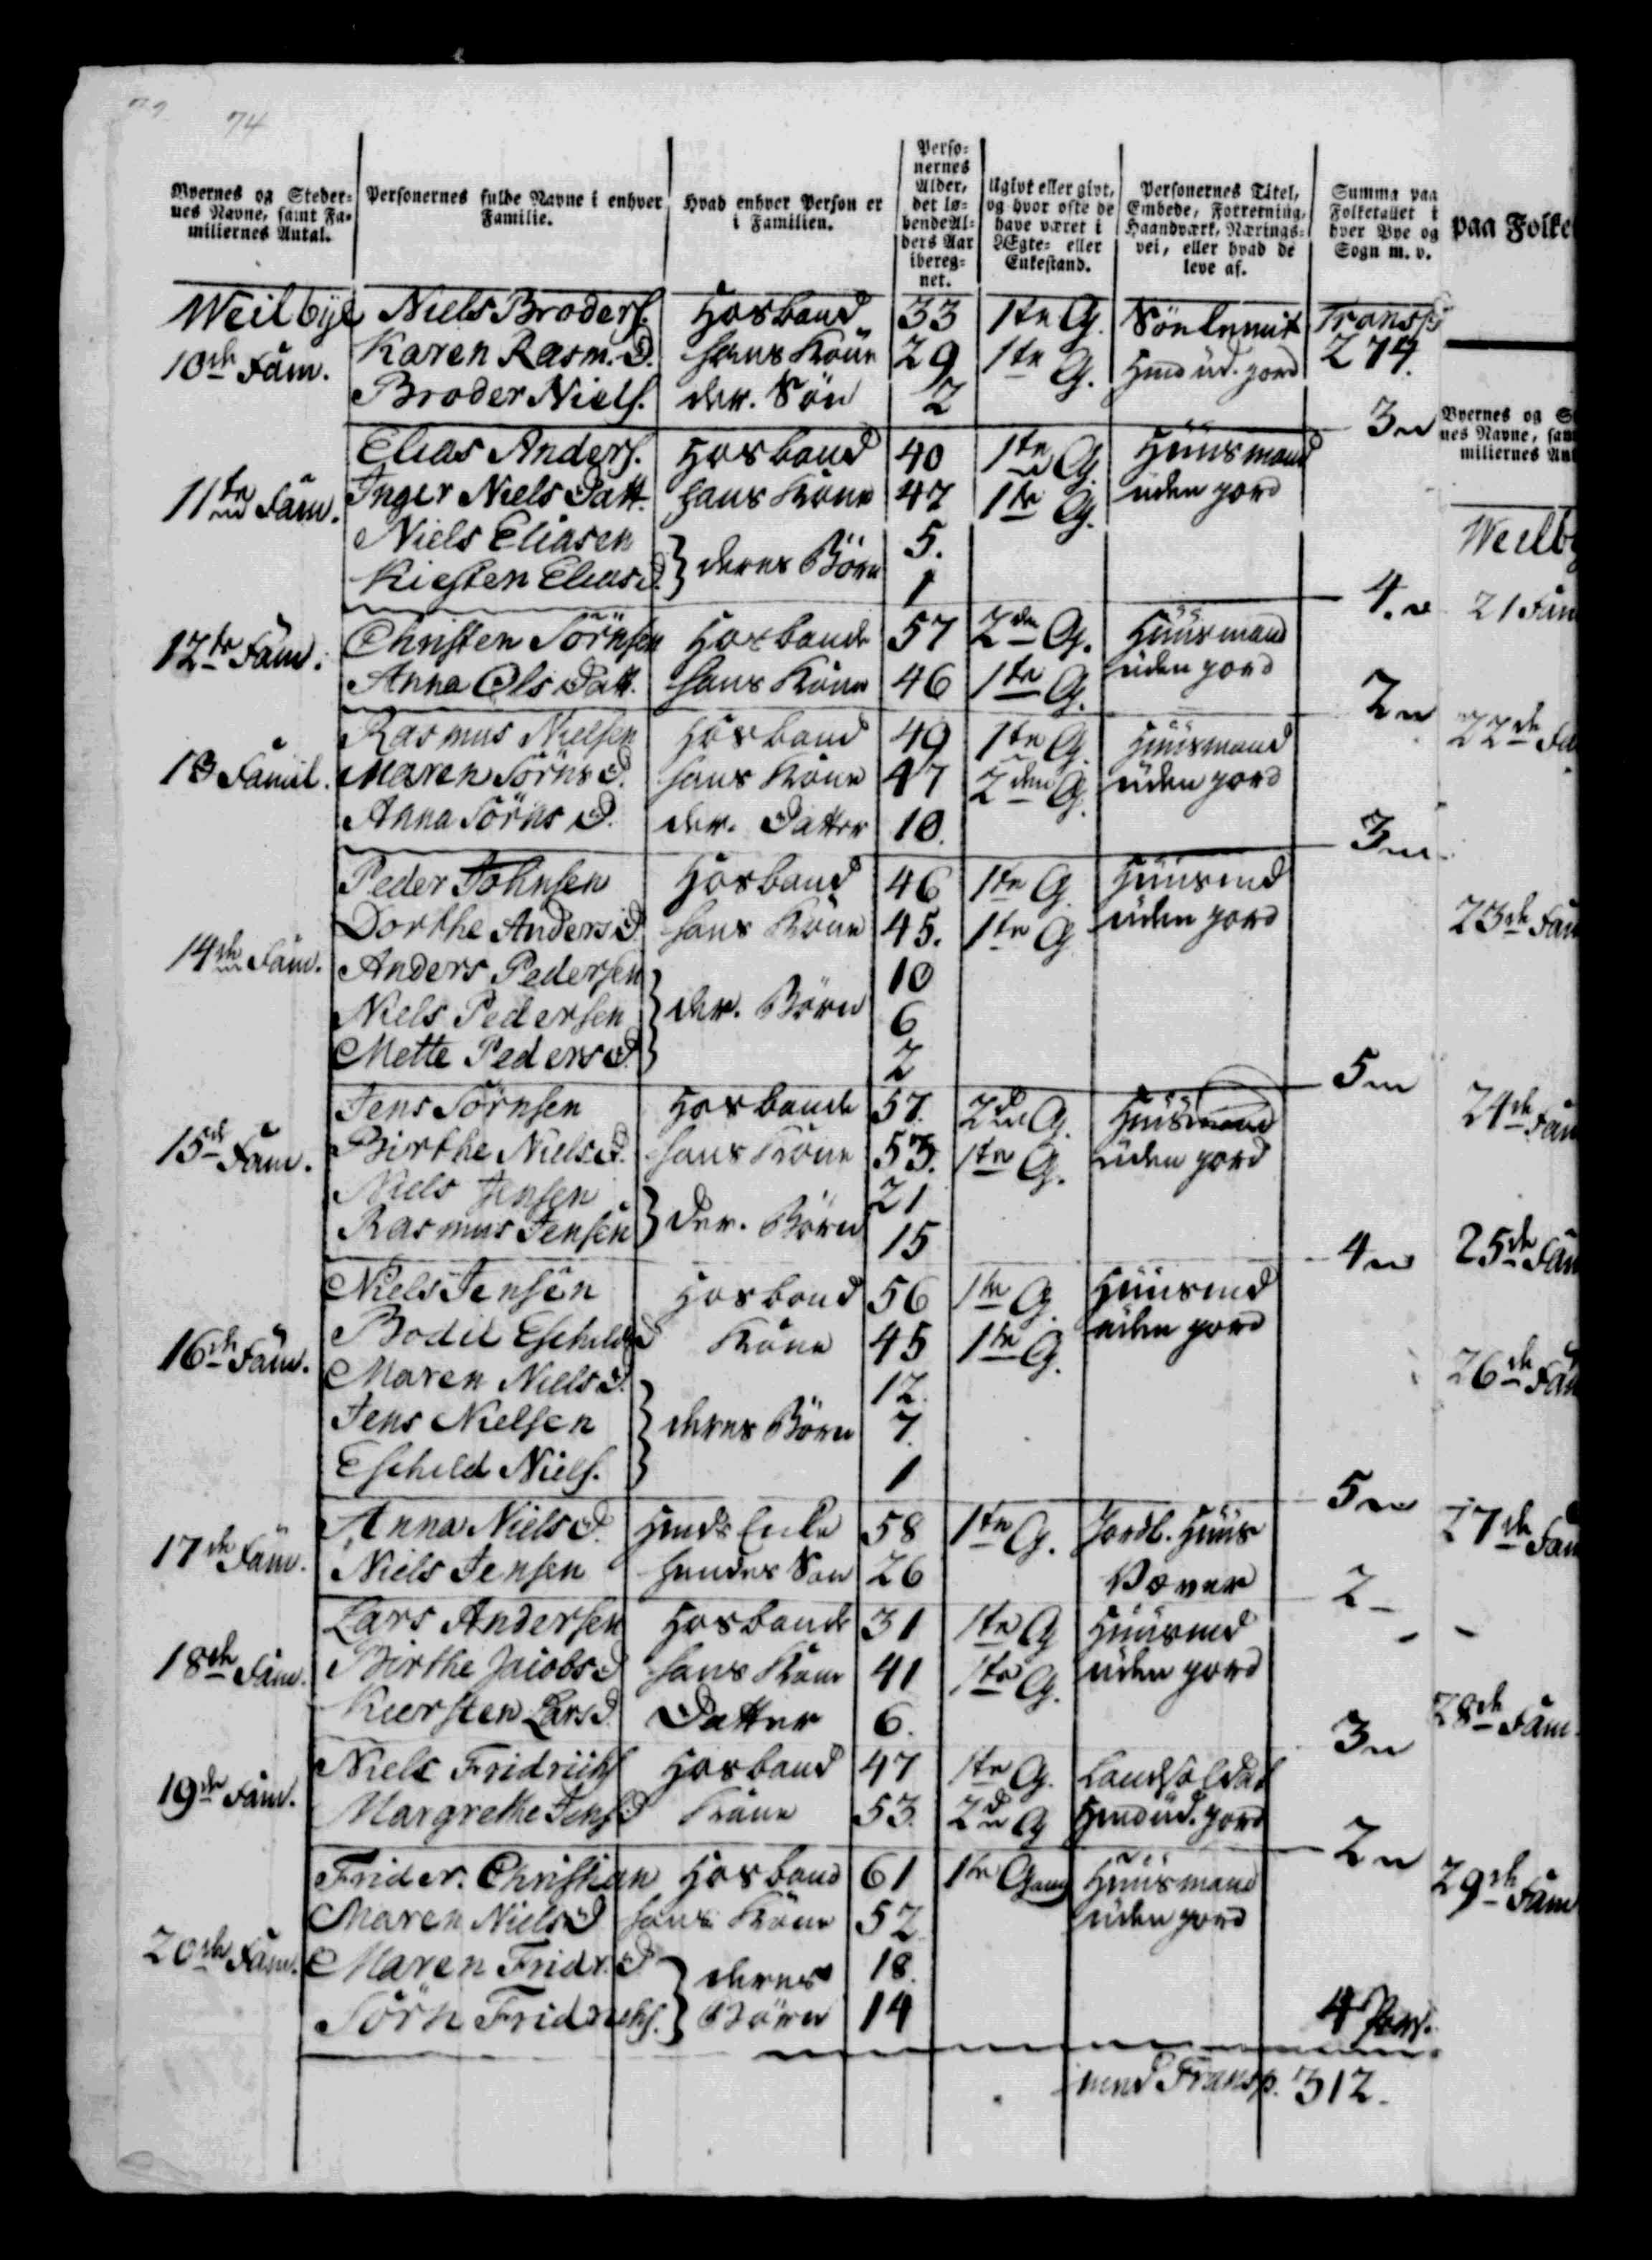 74
Byernes og Stedernes Navne, samt Familiernes Antal.
Personernes fulde Navne i enhver Familie.
Hvad enhver Person er i Familien.
Personernes Alder, det løbende Alders Aar ibereg- net.
Ugivt eller givt, og hvor ofte de have været i Ægte- eller Enkestand.
Personernes Titel, Embede, Forretning, Haandværk, Næringsvei, eller hvad de leve af.
Summa paa Folketallet i hver Bye og Sogn m. v.
paa Folke
Weilbÿe Niels Broders. Hosbond 33 1te G. Transp
10de Fam. Karen Rasm. D. hans Kone 29 1te G. Hmd ud. jord 274.
Broder Niels. der. Sön 2
3
Elias Anders. Hosbond 40 1te G. Huusmand
11te Fam. Inger Niels Datt. hans Kone 47 1te G. uden jord
Niels Eliasen } deres Börn 5.
Kiesten Elias D. 1
4
12te Fam. Christen Sörnsen Hosbonde 57 2den G. Huusmand
Anna Ols Datt. hans Kone 46 1te G. uden jord
2
Rasmus Nielsen Hosbond 49 1te G. Huusmand
13 Famil. Maren Sörns D. hans Kone 47 2den G. uden jord
Anna Sörns D. der. Datter 10.
3
Peder Johnsen Hosbond 46 1te G. Huusmd
Dorthe Anders D. hans Kone 45. 1te G. uden jord
14de Fam. Anders Pedersen 10
Niels Pedersen } der. Börn 6
Mette Peders D. 2
5
Jens Sörnsen Hosbonde 57. 2d G. Huusmand
15de Fam. Birthe Niels D. hans Kone 53. 1te G. uden jord
Niels Jensen 21
Rasmus Jensen } der. Börn 15
4
Niels Jensen Hosbond 56 1te G. Huusmd
16de Fam. Bodil Eschilds D Kone 45 1te G. uden jord
Maren Niels D. 12.
Jens Nielsen } deres Börn 7.
Eschild Niels. 1
5
17de Fam. Anna Niels D. Hmds Enke 58 1te G. Jordl. Huus
Niels Jensen hendes Sön 26 Væver
2
Lars Andersen Hosbonde 31 1te G Huusmd
18de Fam. Birthe Jacobs D hans Kone 41 1te G. uden jord
Kiersten Lars D. Datter 6.
3
Niels Fridrichs Hosbond 47 1te G. Landsoldat
19de Fam. Margrethe Jens D Kone 53. 2d G Hmd ud. jord
2
Frider. Christian Hosbond 61 1te Gang Huusmand
Maren Niels D hans Kone 52 uden jord
20de Fam. Maren Fridr. D } deres 18.
Sörn Fridrichs. Börn 14
4 Pers.
Transp. 312.
Byernes og S
nes Navne, sam
miliernes Ant
Weilb
21 Fam
22de Fa
23de Fam
24de Fam
25de Fam
26de Fam
27de Fam
28de Fam.
29de Fam